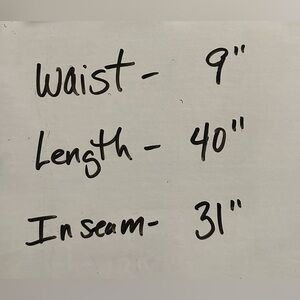 Waist - 9"
Length - 40"
Inseam - 31"